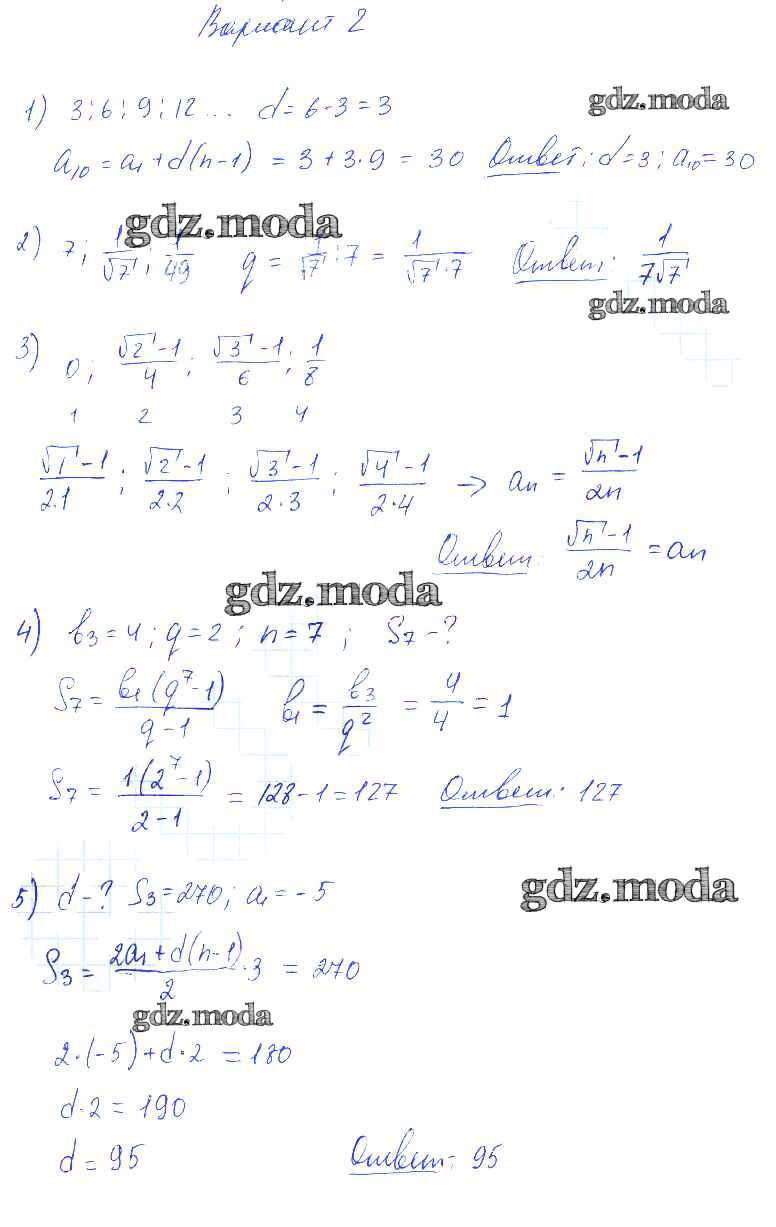 Вариант 2
1) 3; 6; 9; 12... d = 6-3 = 3
gdz.moda
a₁₀ = a₁ + d(n-1) = 3 + 3·9 = 30 Ответ: d=3; a₁₀=30
gdz.moda
2) 7; 1/√7; 1/49 q = 1/√7 : 7 = 1/(√7·7) Ответ: 1/(7√7)
gdz.moda
3) 0; (√2-1)/4; (√3-1)/6; 1/8
1 2 3 4
(√1-1)/(2·1); (√2-1)/(2·2); (√3-1)/(2·3); (√4-1)/(2·4) → aₙ = (√n-1)/(2n)
Ответ: (√n-1)/(2n) = aₙ
gdz.moda
4) b₃=4; q=2; n=7; S₇-?
S₇ = b₁(q⁷-1)/(q-1) b₁ = b₃/q² = 4/4 = 1
S₇ = 1(2⁷-1)/(2-1) = 128-1 = 127 Ответ: 127
gdz.moda
5) d-? S₃=270; a₁=-5
S₃ = (2a₁+d(n-1))/2 · 3 = 270
gdz.moda
2·(-5)+d·2 = 180
d·2 = 190
d = 95 Ответ: 95